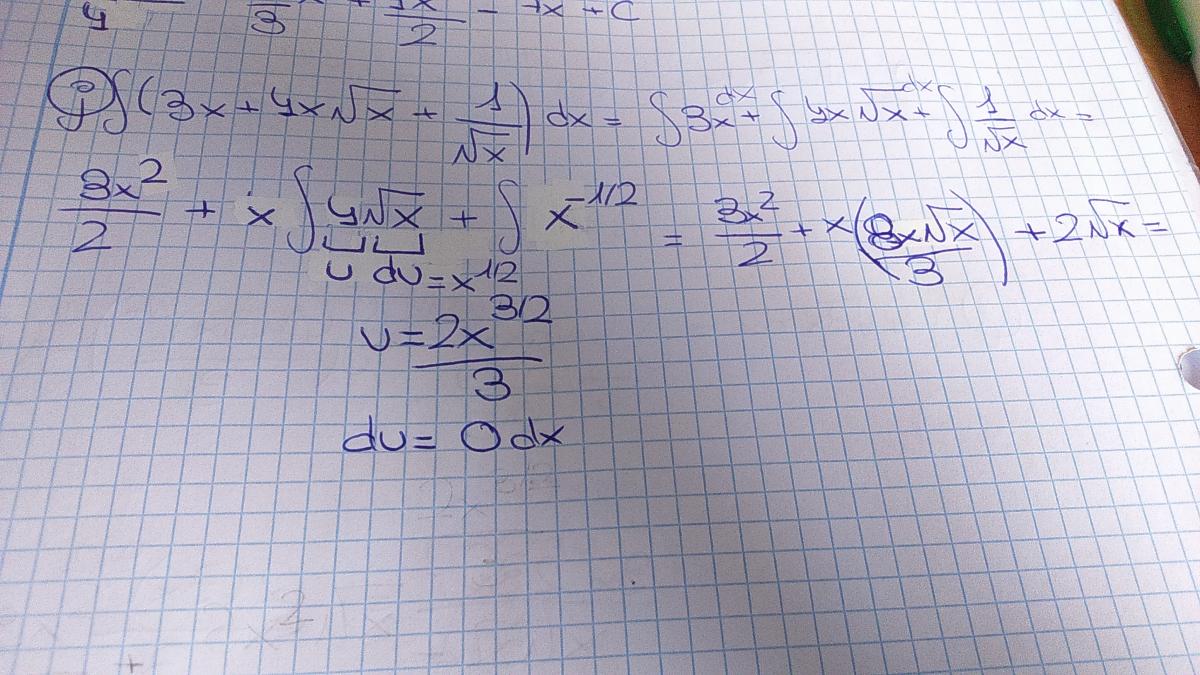 y 3 + 2 - 7x + C
j) ∫(3x + 4x√x + 1/√x) dx = ∫3x dx + ∫4x√x dx + ∫1/√x dx =
3x²/2 + x∫4√x + ∫x^-1/2 = 3x²/2 + x(8x√x/3) + 2√x =
u dv = x^1/2
v = 2x^3/2 / 3
du = 0 dx